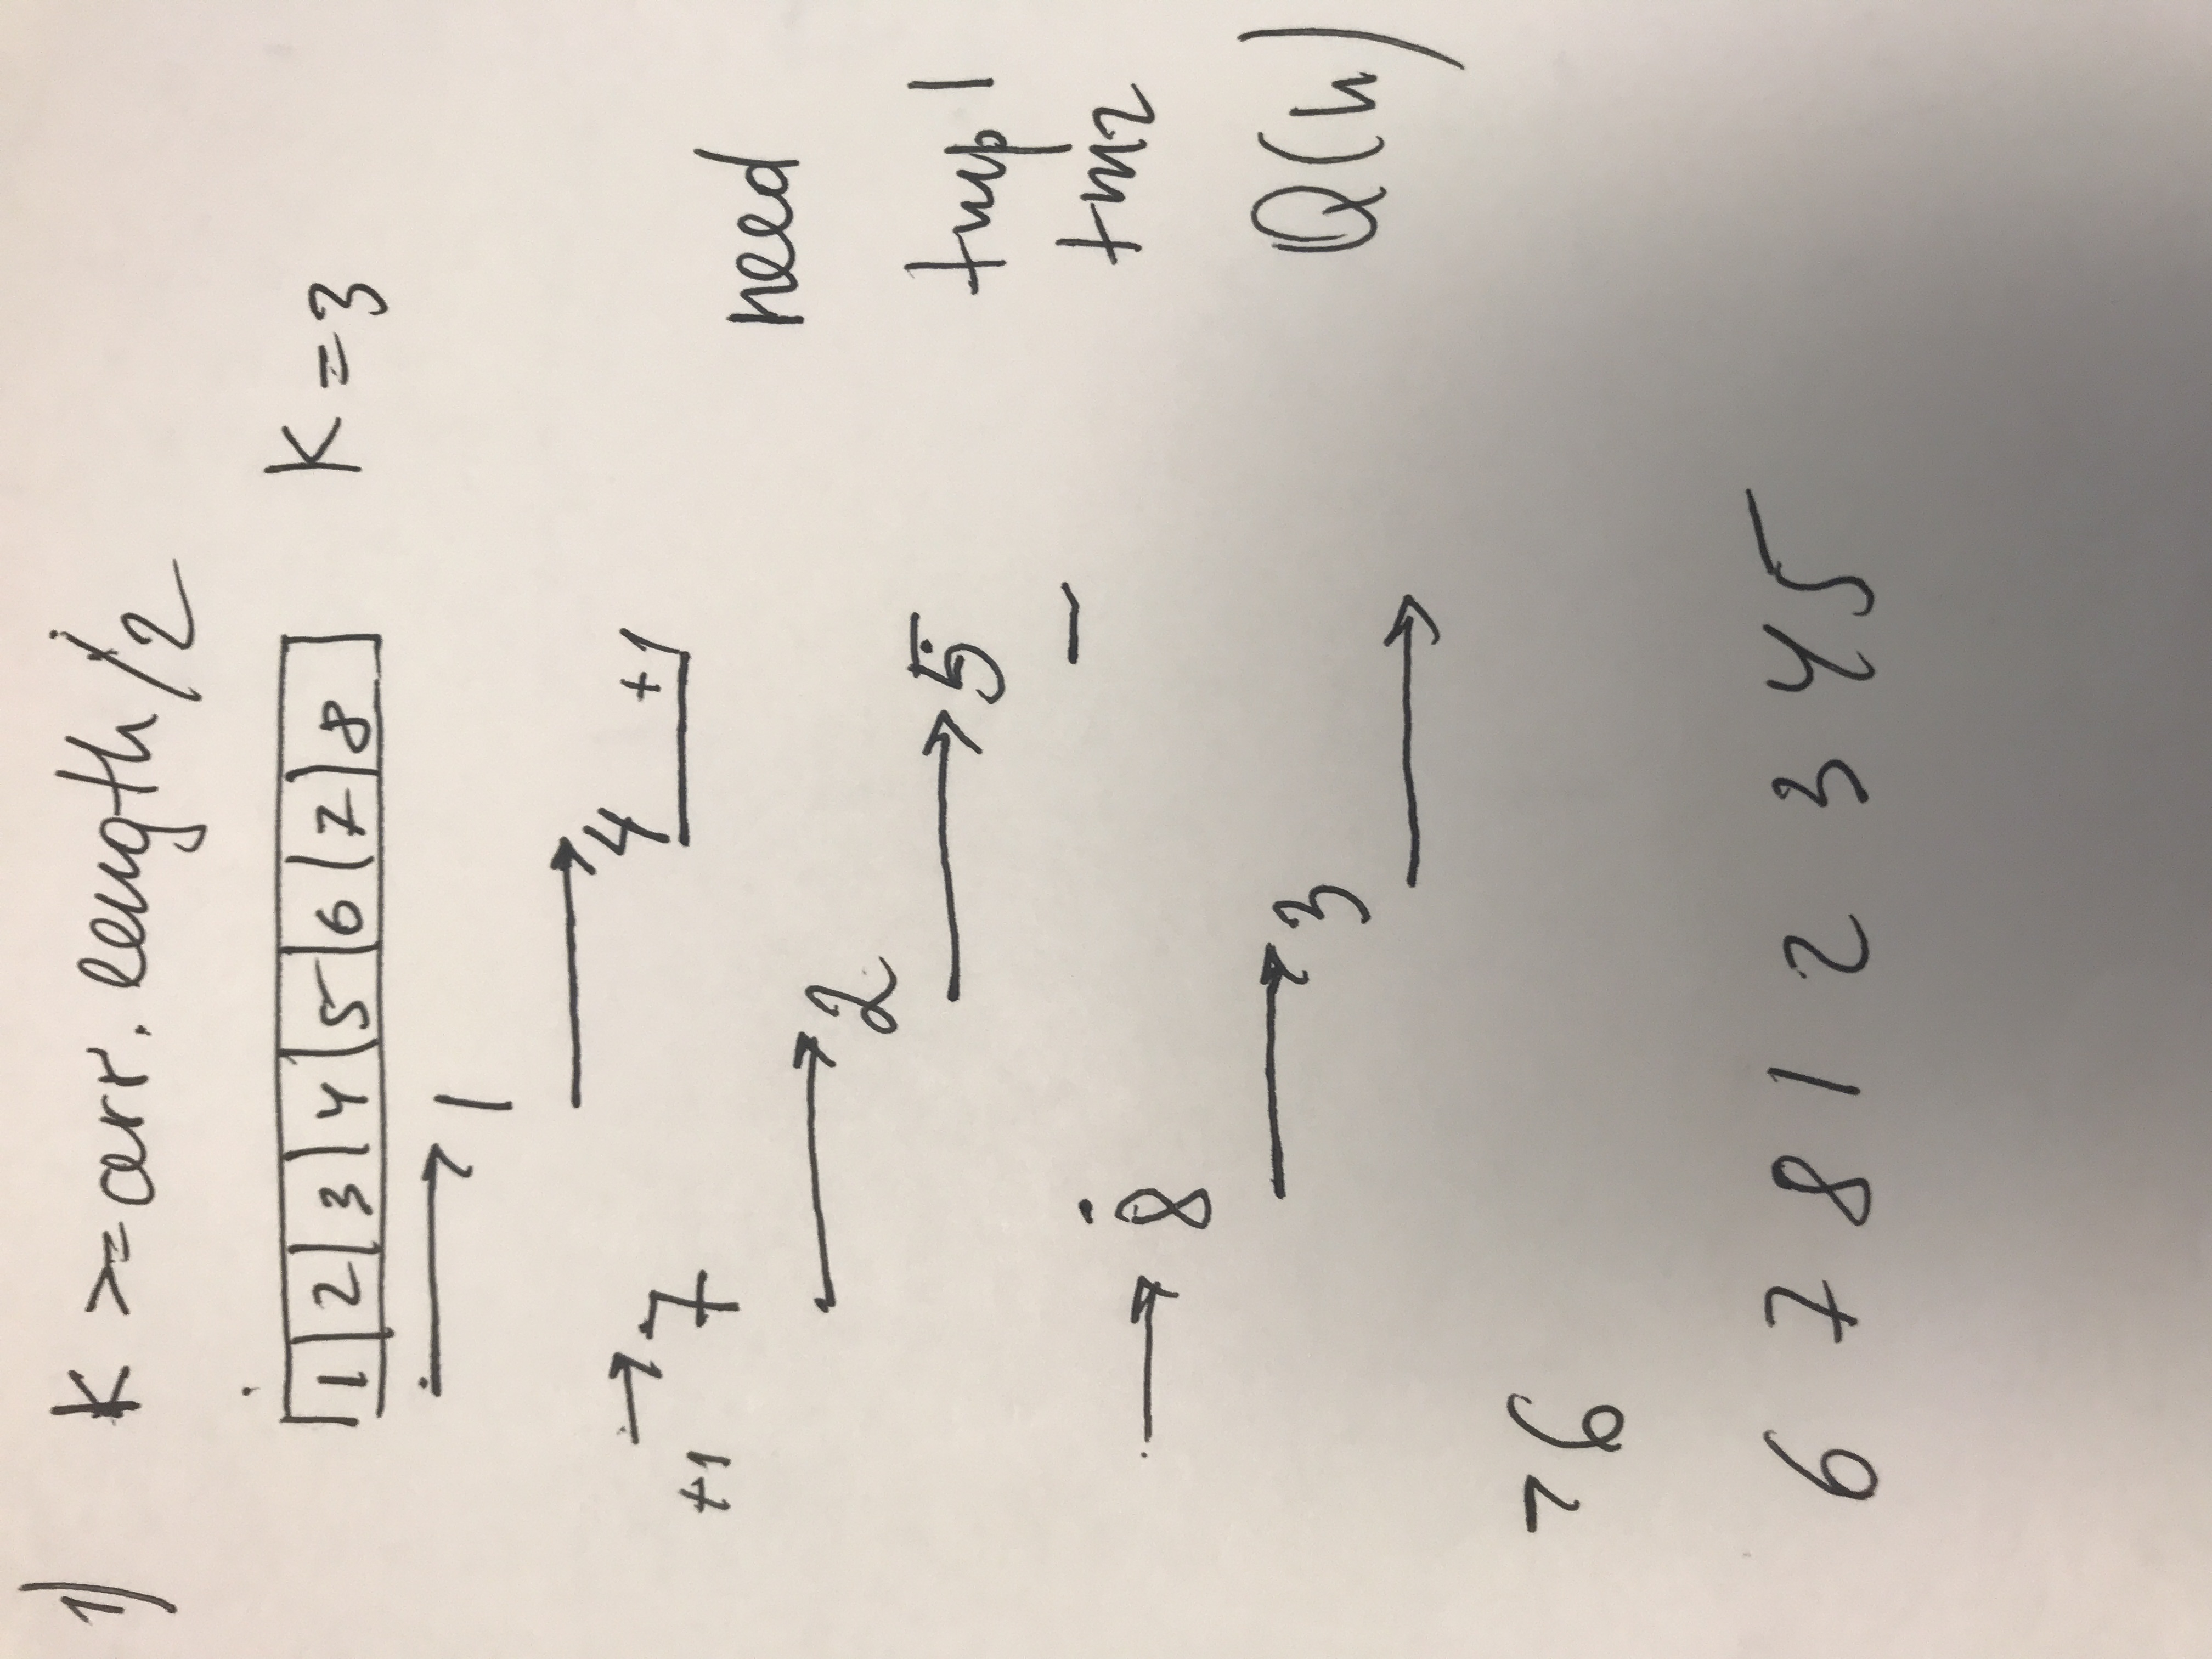 1) K >= arr.length/2
1 2 3 4 5 6 7 8 K = 3
1
4 +1
+1 7
need
2
5 tmp1
tm2
8
3 O(n)
6
6 7 8 1 2 3 4 5